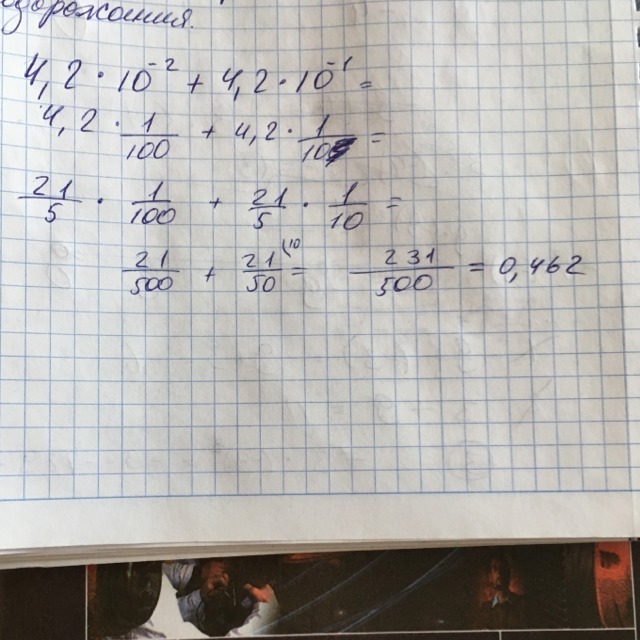 дорожания.
4,2 · 10⁻² + 4,2 · 10⁻¹ =
4,2 · 1/100 + 4,2 · 1/10 =
21/5 · 1/100 + 21/5 · 1/10 =
21/500 + 21/50 (10 = 231/500 = 0,462